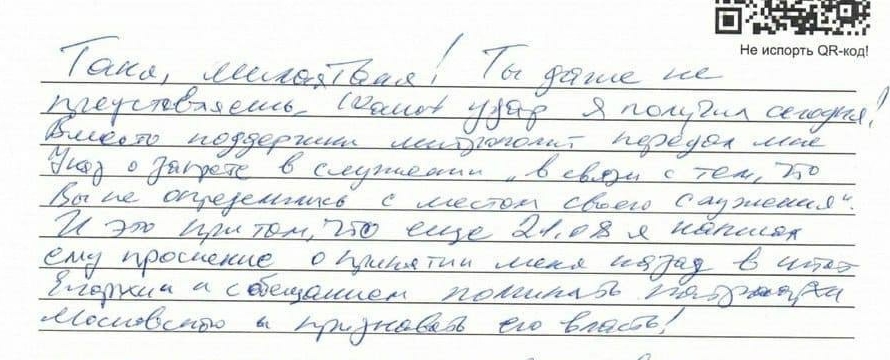 Не испорть QR-код!
Таня, милая Таня! Ты даже не
представляешь, какой удар я получил сегодня!
Вместо поддержки митрополит передал мне
Указ о запрете в служении „в связи с тем, что
Вы не определились с местом своего служения".
И это при том, что еще 21.08 я написал
ему прошение о принятии меня назад в штат
Епархии и с обещанием поминать патриарха
Московского и признавать его власть!